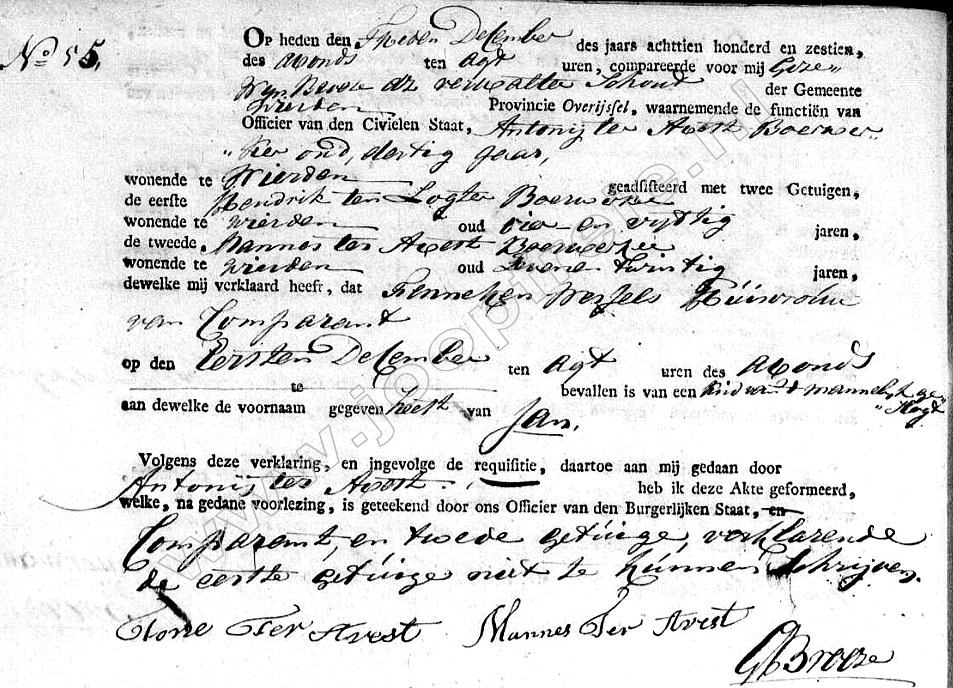 No 55,
Op heden den Tweden December des jaars achttien honderd en zestien,
des Avonds ten Agt uren, compareerde voor mij
der Gemeente
Wierden Provincie Overijssel, waarnemende de functiën van
Officier van den Civielen Staat, Antonij ter Avest Boerwer„
„ker oud, dertig Jaar,
wonende te Wierden geadsisteerd met twee Getuigen,
de eerste Hendrik ten
wonende te Wierden oud vier en vyftig jaren,
de tweede, Mannes ter Avest Boerwerker
wonende te Wierden oud Zeven Twintig jaren,
dewelke mij verklaard heeft, dat Fenneken Wessels Huisvrouw
van Comparant
op den Eersten December ten Agt uren des Avonds
te bevallen is van een Kind van t mannelyk ge„
aan dewelke de voornaam gegeven heeft van Jan, „slagt
Volgens deze verklaring, en ingevolge de requisitie, daartoe aan mij gedaan door
Antonij ter Avest heb ik deze Akte geformeerd,
welke, na gedane voorlezing, is geteekend door ons Officier van den Burgerlijken Staat, en
Comparant, en twede getuige, verklarende
de eerste getuige niet te kunnen Schrijven.
Tone Ter Avest Mannes Ter Avest
GBrooze
www.joopunie.nl